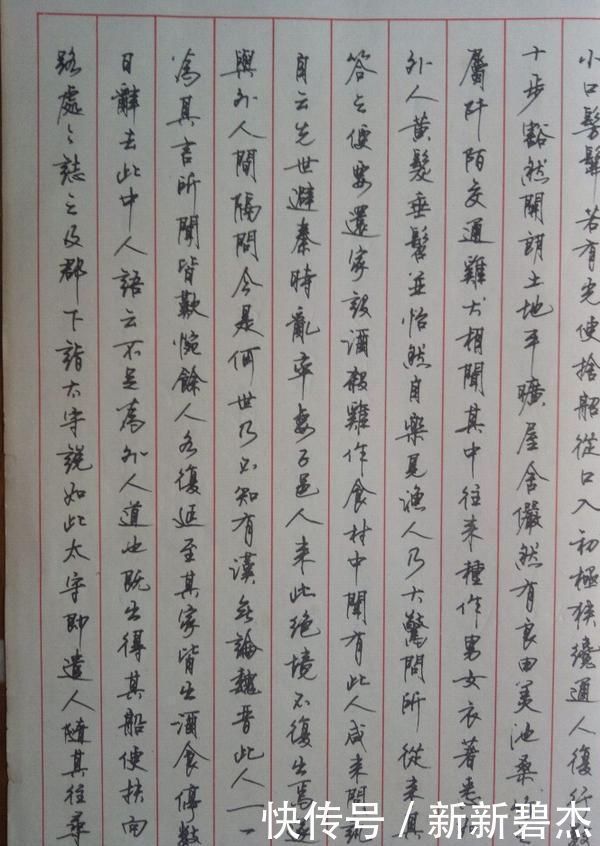 小口髣髴若有光便捨船從口入初極狹纔通人復行數
十步豁然開朗土地平曠屋舍儼然有良田美池桑竹之
屬阡陌交通雞犬相聞其中往來種作男女衣著悉如
外人黃髮垂髫並怡然自樂見漁人乃大驚問所從來具
答之便要還家設酒殺雞作食村中聞有此人咸來問訊
自云先世避秦時亂率妻子邑人來此絕境不復出焉遂
與外人間隔問今是何世乃不知有漢無論魏晉此人一一
為具言所聞皆歎惋餘人各復延至其家皆出酒食停數
日辭去此中人語云不足為外人道也既出得其船便扶向
路處處誌之及郡下詣太守說如此太守即遣人隨其往尋
快传号／新新碧杰